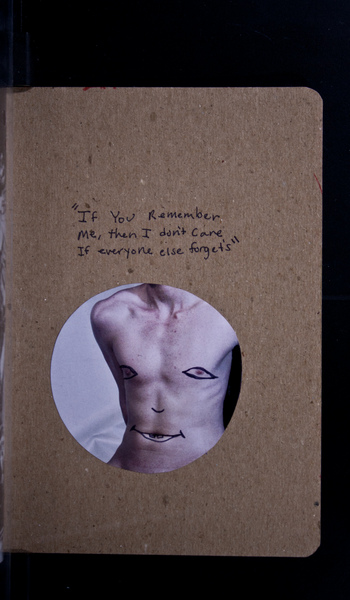 "If You Remember
Me, then I don't Care
If everyone else forget's"